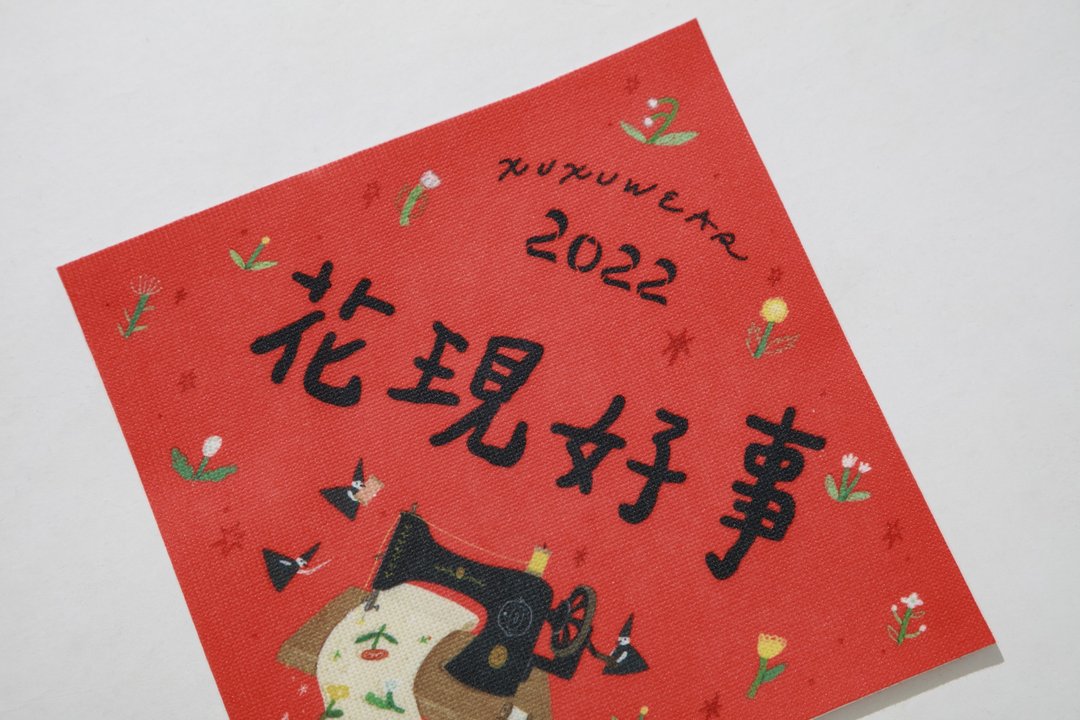 XUXUWEAR
2022
花現好事